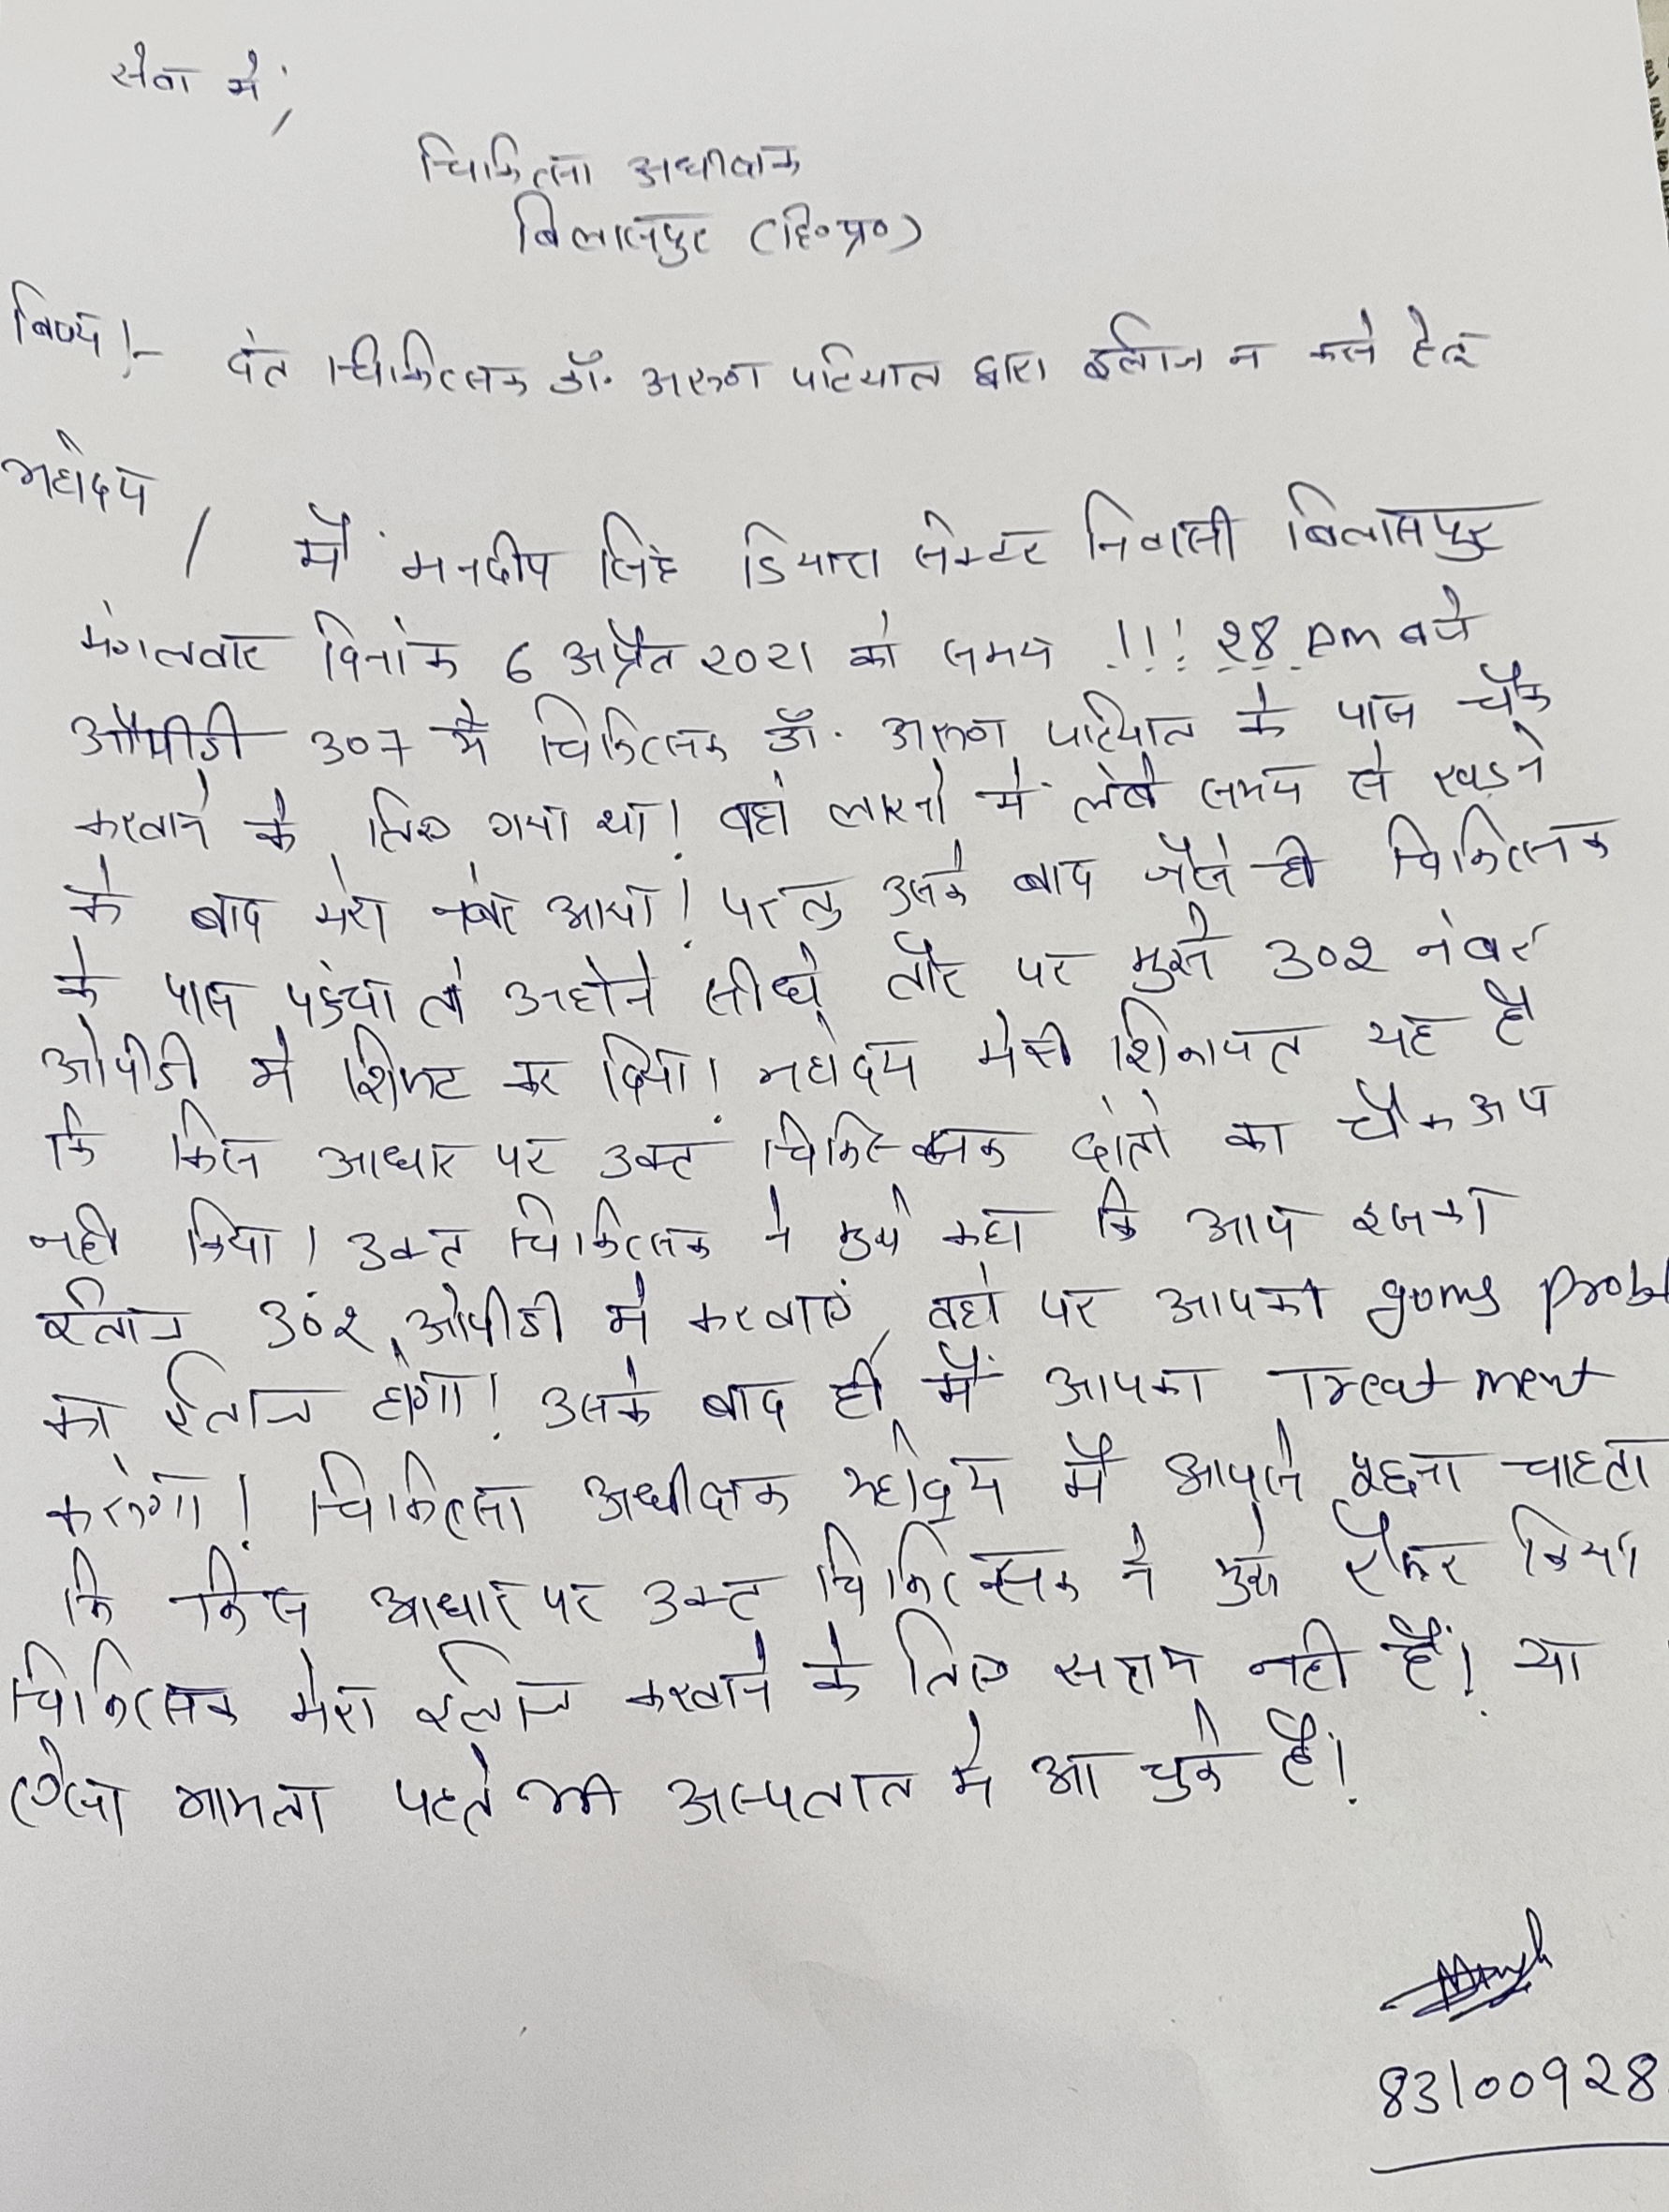 सेवा में,
चिकित्सा अधीक्षक
बिलासपुर (हि०प्र०)
विषय:- दंत चिकित्सक डॉ. अरूण पटियाल द्वारा ईलाज न करने हेतु
महोदय,
मैं मनदीप सिंह डियारा सेक्टर निवासी बिलासपुर
मंगलवार दिनांक 6 अप्रैल 2021 को समय 11:28 pm बजे
ओपीडी 307 में चिकित्सक डॉ. अरूण पटियाल के पास चैक
करवाने के लिए गया था। वहां लाइनों में लंबे समय से खड़ने
के बाद मेरा नंबर आया। परन्तु उसके बाद जैसे ही चिकित्सक
के पास पहुंचा तो उन्होंने सीधे तौर पर मुझे 302 नंबर
ओपीडी में शिफ्ट कर दिया। महोदय मेरी शिकायत यह है
कि किस आधार पर उक्त चिकित्सक दांतों का चैकअप
नहीं किया। उक्त चिकित्सक ने मुझे कहा कि आप इसका
ईलाज 302 ओपीडी में करवाएं, वहां पर आपका gums
का ईलाज होगा। उसके बाद ही मैं आपका Treatment
करूंगा। चिकित्सा अधीक्षक महोदय मैं आपसे पूछना चाहता
कि किस आधार पर उक्त चिकित्सक ने मुझे रैफर किया
चिकित्सक मेरा ईलाज करवाने के लिए सक्षम नहीं हैं। या
ऐसा मामला पहले भी अस्पताल में आ चुके हैं।
83100928